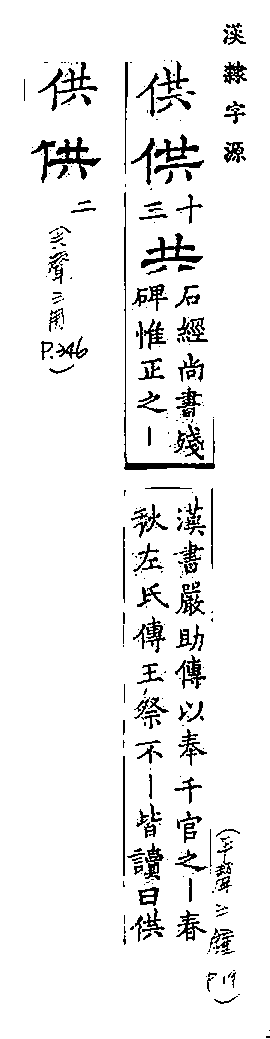 漢隸字源
供
供
十三
共
石經尚書殘
碑惟正之｜
漢書嚴助傳以奉千官之｜春
秋左氏傳王祭不｜皆讀曰供
(平聲三鍾
P.19)
供
供
二
(去聲三用
P.346)